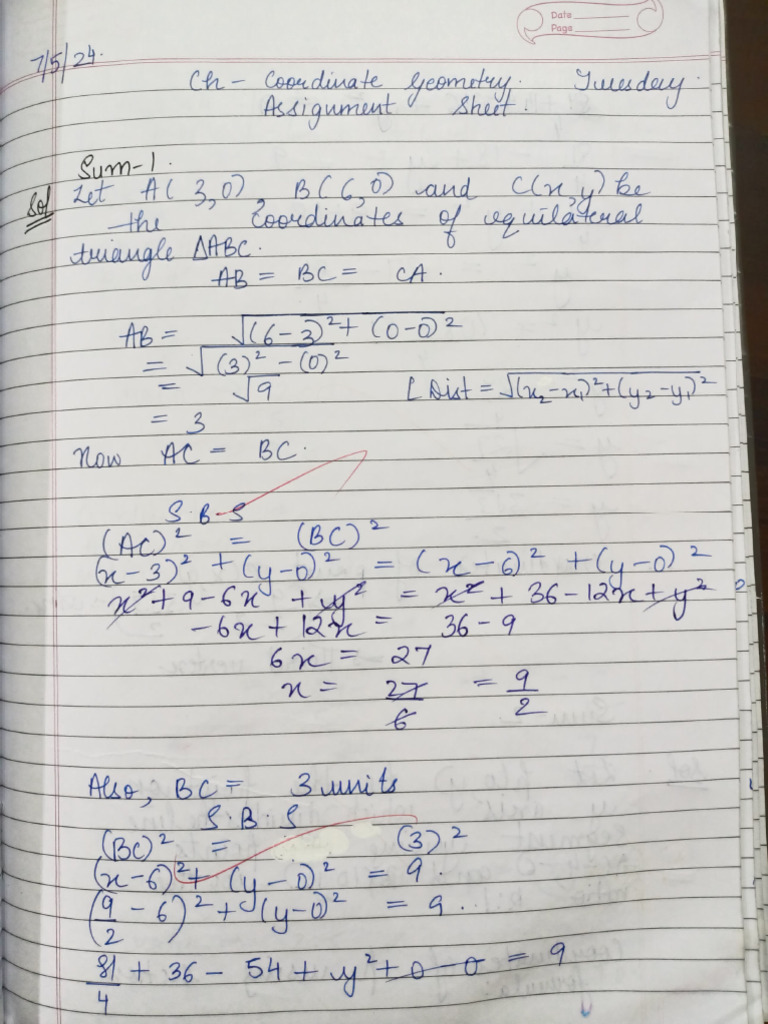 Date
Page
7/5/24.
Ch - Coordinate Geometry. Tuesday.
Assignment Sheet.
Sum-1.
Sol Let A(3,0), B(6,0) and C(x,y) be
the coordinates of equilateral
triangle ΔABC.
AB = BC = CA.
AB = √(6-3)²+(0-0)²
= √(3)²-(0)²
= √9 [Dist = √(x₂-x₁)²+(y₂-y₁)²
= 3
Now AC = BC.
S.B.S
(AC)² = (BC)²
(x-3)² + (y-0)² = (x-6)² + (y-0)²
x² + 9 - 6x + y² = x² + 36 - 12x + y²
-6x + 12x = 36 - 9
6x = 27
x = 27/6 = 9/2
Also, BC = 3 units
S.B.S
(BC)² = (3)²
(x-6)² + (y-0)² = 9.
(9/2 - 6)² + (y-0)² = 9.
81/4 + 36 - 54 + y² + 0 - 0 = 9